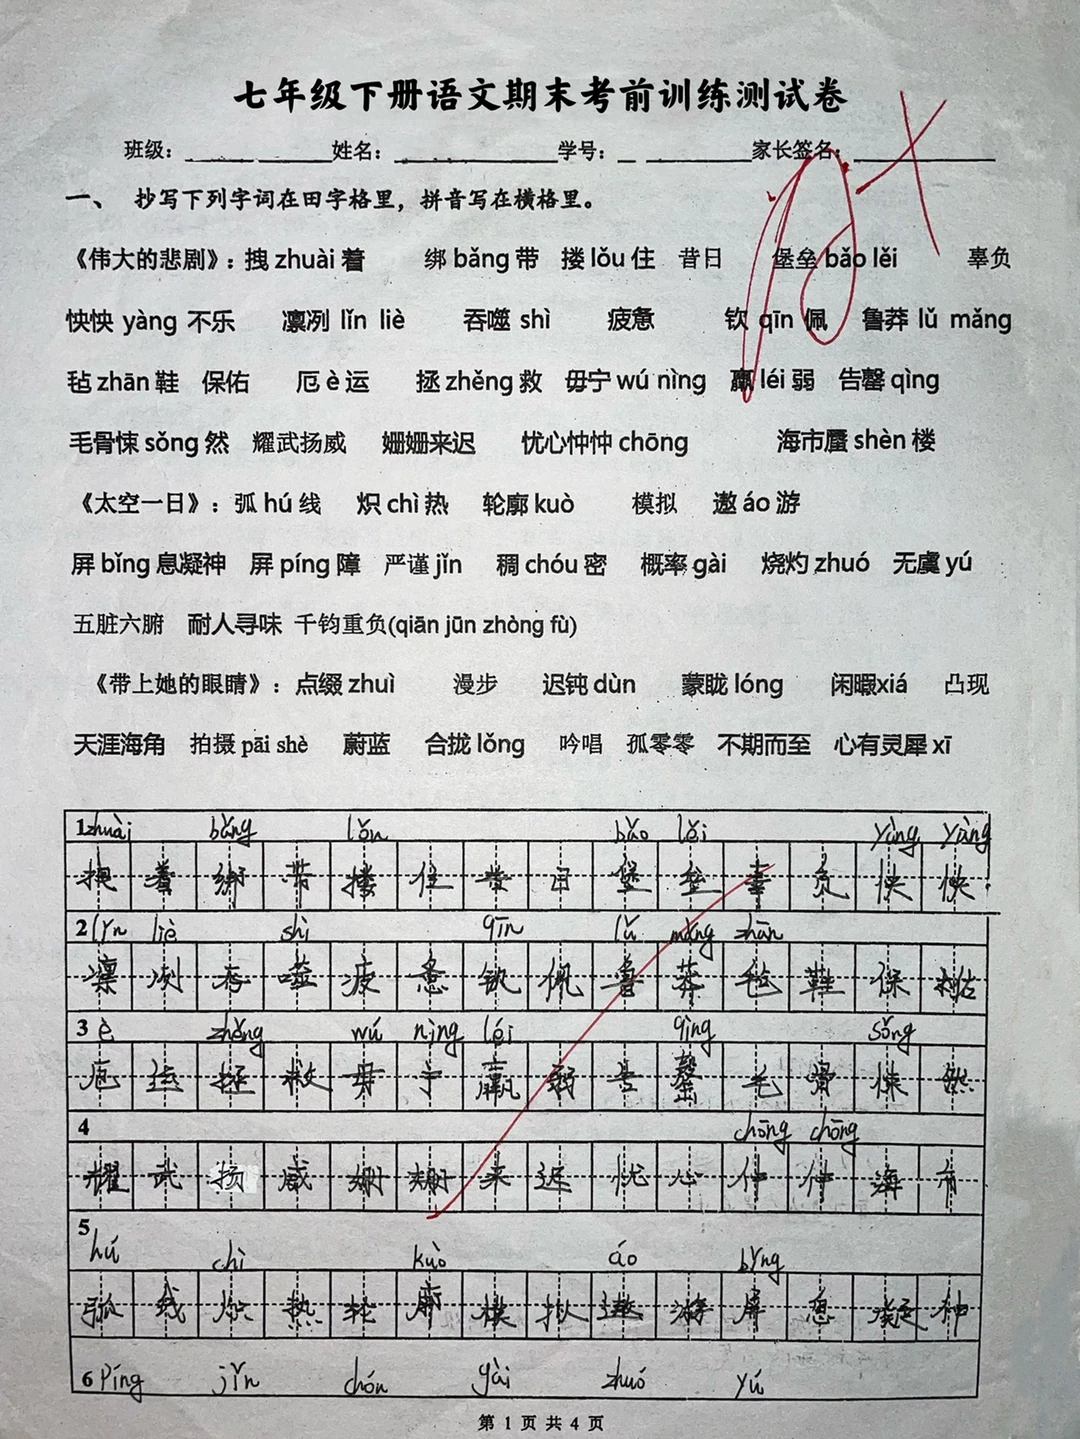 七年级下册语文期末考前训练测试卷
班级：姓名：学号：家长签名：
一、 抄写下列字词在田字格里，拼音写在横格里。
《伟大的悲剧》：拽 zhuài 着 绑 bǎng 带 搂 lǒu 住 昔日 堡垒 bǎo lěi 辜负
怏怏 yàng 不乐 凛冽 lǐn liè 吞噬 shì 疲惫 钦 qīn 佩 鲁莽 lǔ mǎng
毡 zhān 鞋 保佑 厄 è 运 拯 zhěng 救 毋宁 wú nìng 羸 léi 弱 告罄 qìng
毛骨悚 sǒng 然 耀武扬威 姗姗来迟 忧心忡忡 chōng 海市蜃 shèn 楼
《太空一日》：弧 hú 线 炽 chì 热 轮廓 kuò 模拟 遨 áo 游
屏 bǐng 息凝神 屏 píng 障 严谨 jǐn 稠 chóu 密 概率 gài 烧灼 zhuó 无虞 yú
五脏六腑 耐人寻味 千钧重负(qiān jūn zhòng fù)
《带上她的眼睛》：点缀 zhuì 漫步 迟钝 dùn 蒙眬 lóng 闲暇xiá 凸现
天涯海角 拍摄 pāi shè 蔚蓝 合拢 lǒng 吟唱 孤零零 不期而至 心有灵犀 xī
1 zhuài bǎng lǒu bǎo lěi yàng yàng
拽着绑带搂住昔日堡垒辜负怏怏
2 lǐn liè shì qīn lǔ mǎng zhān
凛冽吞噬疲惫钦佩鲁莽毡鞋保佑
3 è zhěng wú nìng léi qìng sǒng
厄运拯救毋宁羸弱告罄毛骨悚然
4 chōng chōng
耀武扬威姗姗来迟忧心忡忡海市
5
hú chì kuò áo bǐng
弧线炽热轮廓模拟遨游屏息凝神
6 píng jǐn chóu gài zhuó yú
第 1 页 共 4 页